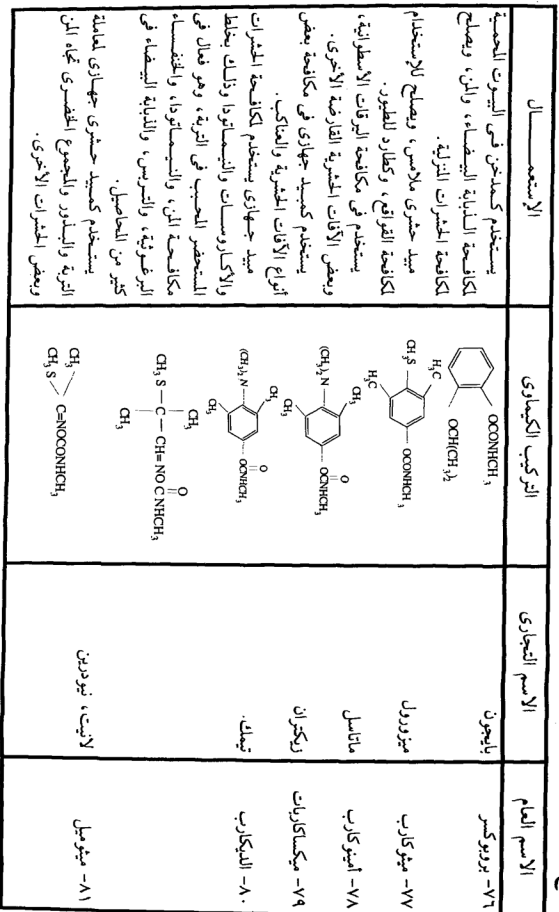 الاسم العام
الاسم التجارى
التركيب الكيماوى
الإستعمـــــال
٧٦- بروبوكسر
بايجون
OCONHCH3
OCH(CH3)2
يستخدم كـمدخن فـى البـيوت المحمـية
لمكافحـة الذبابة البيـضـاء، والمن، ويصلح
لمكافحة الحشرات المنزلية.
٧٧- ميثوكارب
ميزورول
H3C
CH3S
H3C
OCONHCH3
مبيد حشرى ملامس، ويصلح للإستخدام
لمكافحة القواقع، وكطارد للطيور.
٧٨- أمينوكارب
ماتاسل
CH3
(CH3)2 N
CH3
O
OCNHCH3
يستخدم فى مكافحة اليرقات الأسطوانية،
وبعض الآفات الحشرية القارضة الأخرى.
٧٩- ميكساكاربات
زيكتران
CH3
(CH3)2 N
CH3
O
OCNHCH3
يستخدم كمبيد جهازى فى مكافحة بعض
أنواع الآفات الحشرية والعناكب.
٨٠- الديكارب
تيمك.
CH3
CH3S – C – CH= NO C NHCH3
O
CH3
مبيد جـهـازى يستخدم لمكافـحـة الحشرات
والأكـاروسـات والنيـمـاتودا وذلـك بخلط
المستحضر المحـبب فى التربة، وهو فعال فى
مكافـحـة المن، والنيـمـاتودا، والخنفـسـاء
البرغـوثيـة، والتـربس، والذبابة البيـضـاء فى
كثير من المحاصيل.
٨١- ميثوميل
لانيت، نيودرين
CH3
CH3S
C=NOCONHCH3
يستخدم كمـبيـد حـشرى جهـازى لمعاملة
التربة والبـذور والمجموع الخضـرى تجاه المن
وبعض الحشرات الأخرى.